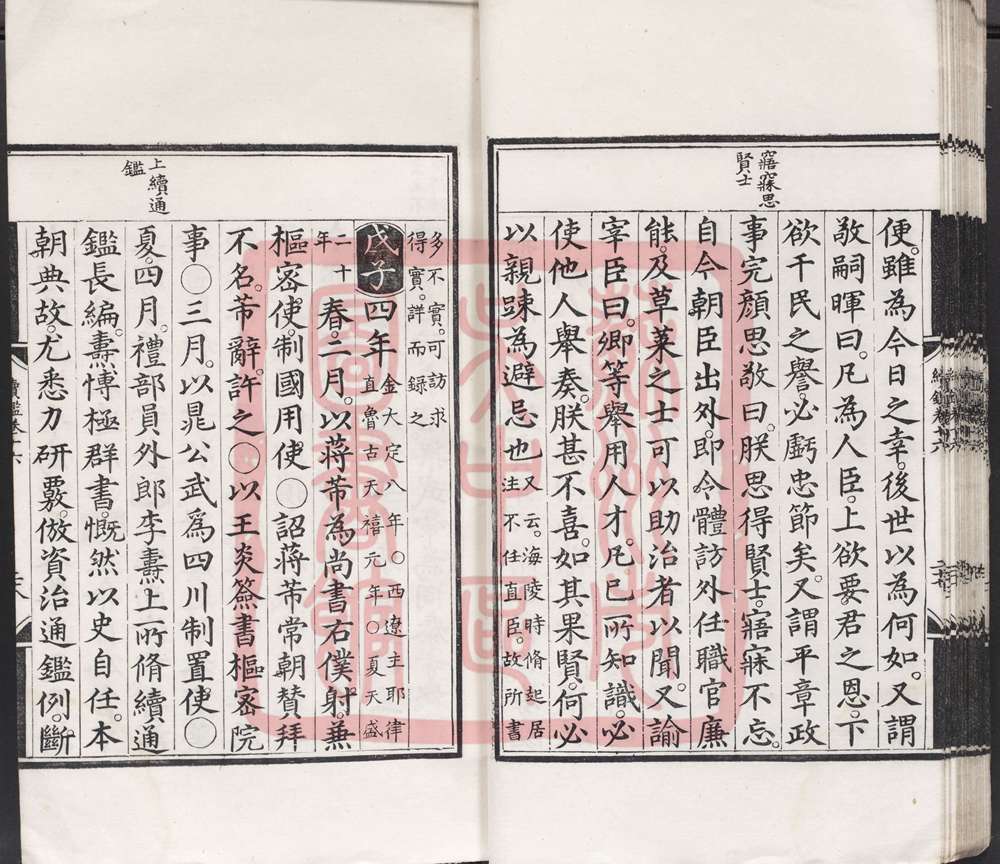 寤寐思
賢士
便。雖為今日之幸。後世以為何如。又謂
敬嗣暉曰。凡為人臣。上欲要君之恩。下
欲千民之譽。必虧忠節矣。又謂平章政
事完顏思敬曰。朕思得賢士。寤寐不忘。
自今朝臣出外。即令體訪外任職官廉
能。及草萊之士可以助治者以聞。又諭
宰臣曰。卿等舉用人才。凡已所知識。必
使他人舉奏。朕甚不喜。如其果賢。何必
以親踈為避忌也又云。海陵時脩起居
注不任直臣。故所書
上續通
鑑
多不實。可訪求
得實。詳而錄之
戊子四年金大定八年。○西遼主耶律
直魯古天禧元年○夏天盛
二十
年春。二月。以蔣芾為尚書右僕射。兼
樞密使。制國用使○詔蔣芾常朝贊拜
不名。芾辭。許之○以王炎簽書樞密院
事○三月。以晁公武爲四川制置使○
夏。四月。禮部員外郎李燾上所脩續通
鑑長編。燾博極群書。慨然以史自任。本
朝典故。尤悉力研覈。倣資治通鑑例。斷
續鑑卷十六